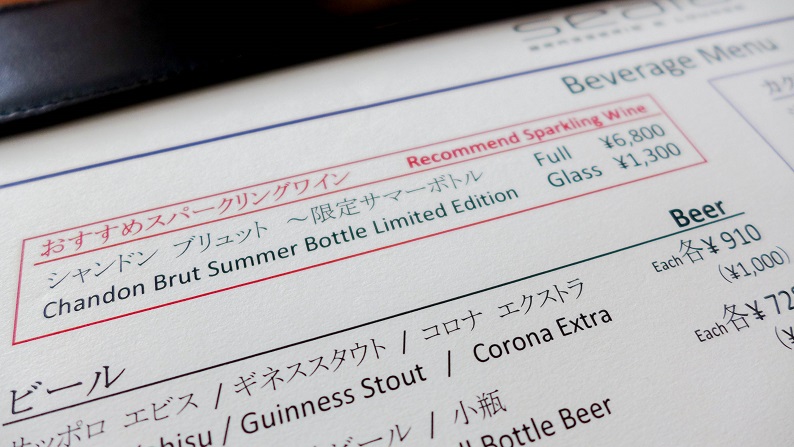 Beverage Menu
おすすめスパークリングワイン Recommend Sparkling Wine
シャンドン ブリュット ～限定サマーボトル Full ¥6,800
Chandon Brut Summer Bottle Limited Edition Glass ¥1,300
ビール Beer
サッポロ エビス / ギネススタウト / コロナ エクストラ Each各¥910
/ Guinness Stout / Corona Extra (¥1,000)
ビール / 小瓶 Each各¥
Bottle Beer